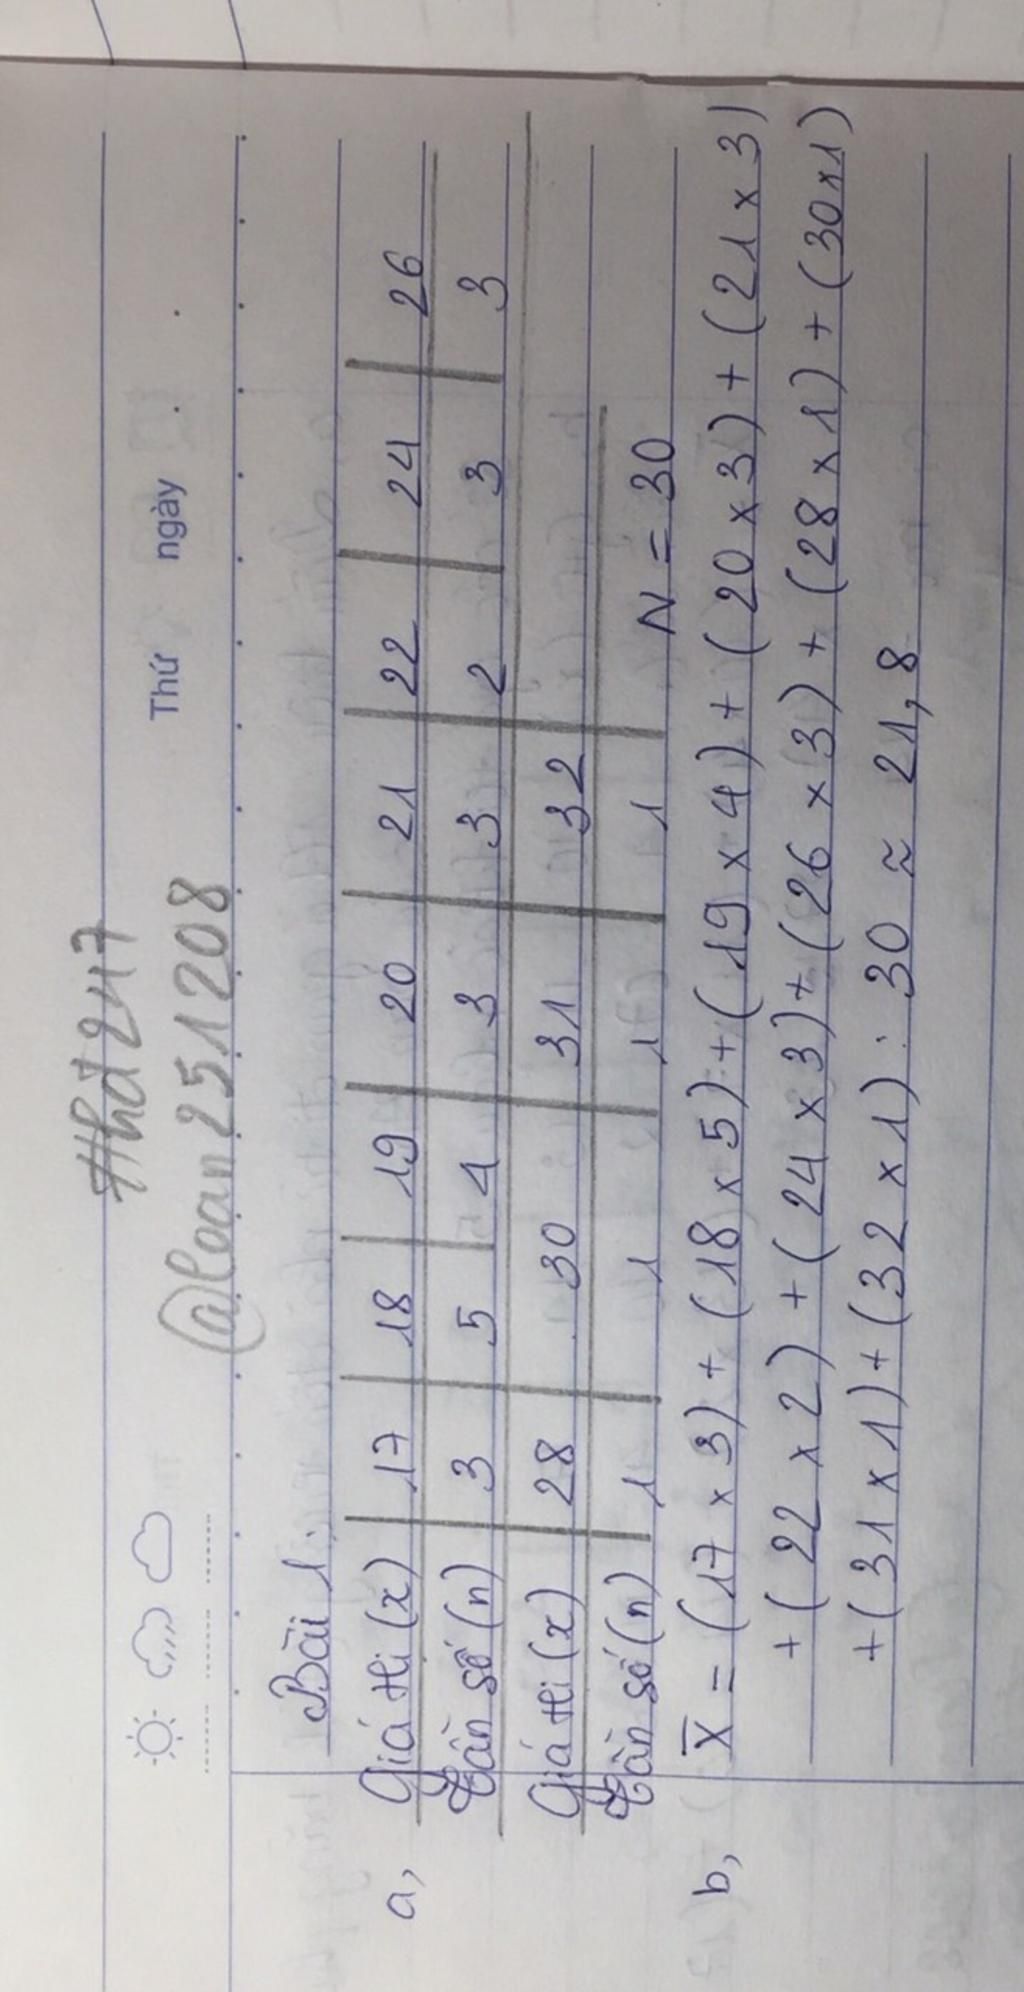 #hd247
@loan251208
Thứ ngày
Bài 1:
a, Giá trị (x) 17 18 19 20 21 22 24 26
Tần số (n) 3 5 4 3 3 2 3 3
Giá trị (x) 28 30 31 32
Tần số (n) 1 1 1 1 N = 30
b, X̅ = (17 x 3) + (18 x 5) + (19 x 4) + (20 x 3) + (21 x 3)
+ (22 x 2) + (24 x 3) + (26 x 3) + (28 x 1) + (30x1)
+ (31 x 1) + (32 x 1) : 30 ≈ 21,8